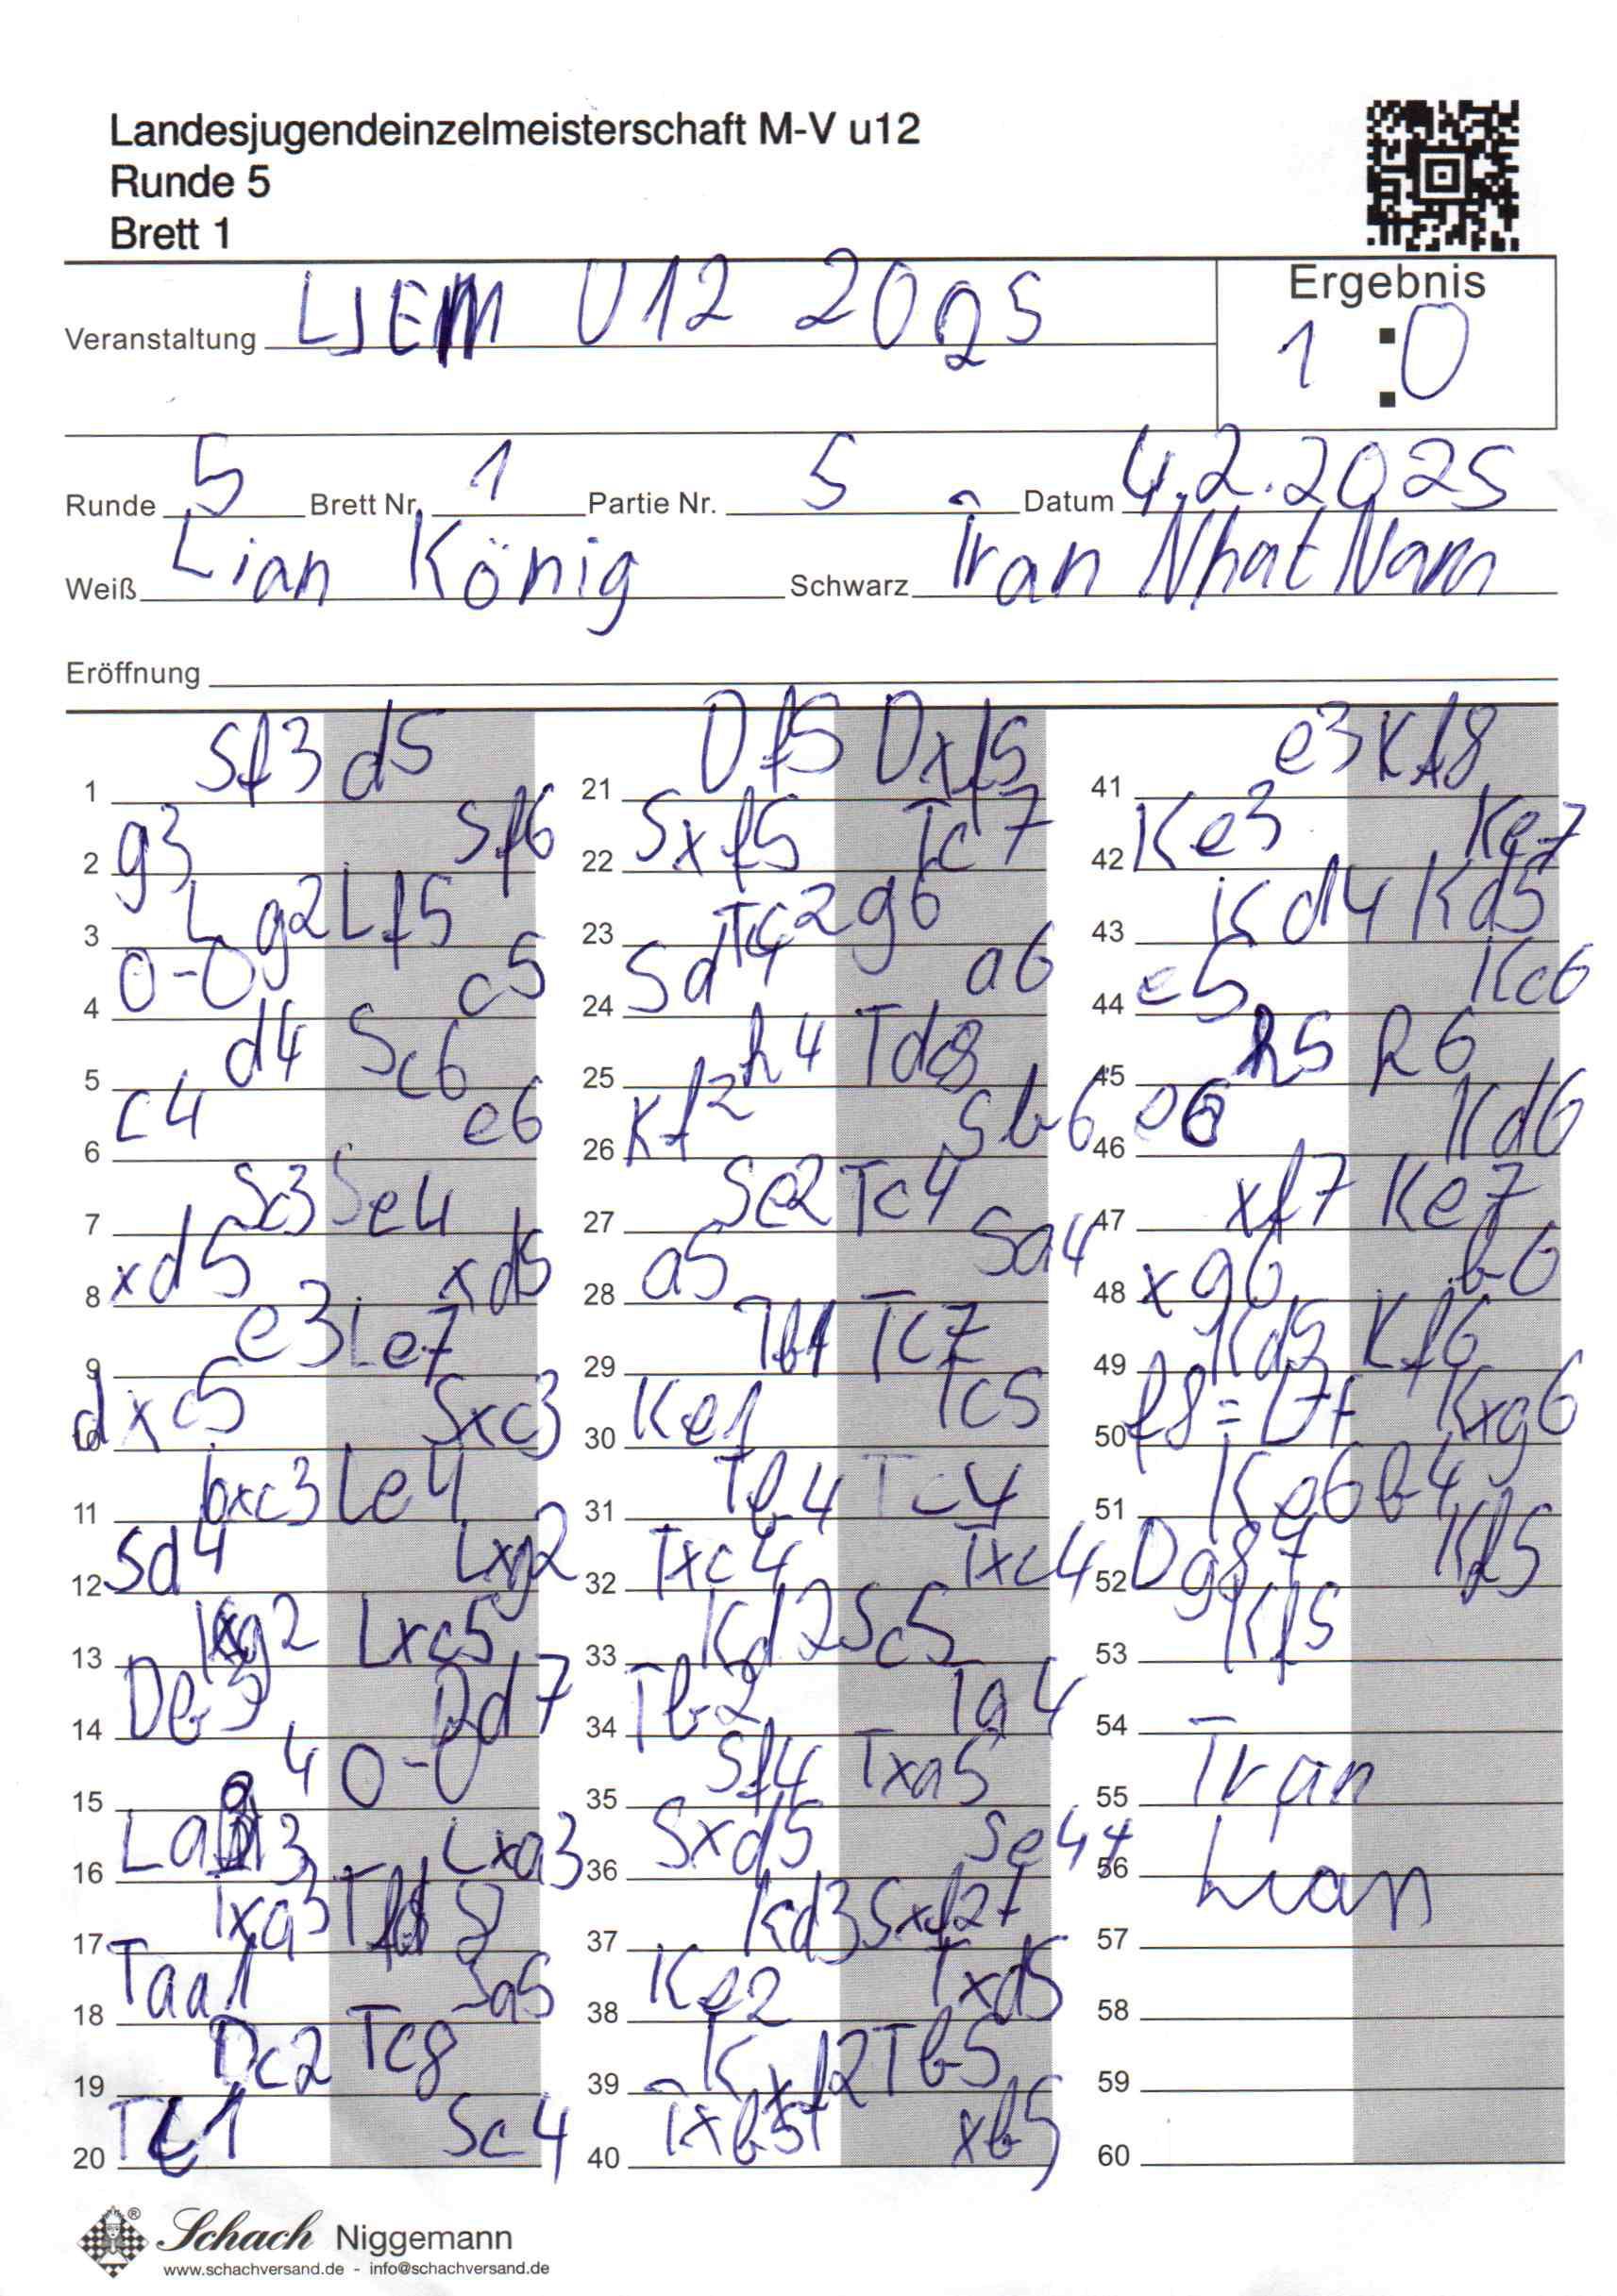 Landesjugendeinzelmeisterschaft M-V u12
Runde 5
Brett 1
Veranstaltung LJEM U12 2025
Ergebnis
1 : 0
Runde 5 Brett Nr. 1 Partie Nr. 5 Datum 4.2.2025
Weiß Lian König Schwarz Tran Nhat Nam
Eröffnung
1 Sf3 d5
2 g3 Sf6
3 Lg2 Lf5
4 0-0 c5
5 d4 Sc6
6 c4 e6
7 Sc3 Se4
8 xd5 xd5
9 e3 Le7
10 dxc5 Sxc3
11 bxc3 Le4
12 Sd4 Lxg2
13 Kxg2 Lxc5
14 Db3 Dd7
15 4 0-0
16 La3 Lxa3
17 Txa3
18 Taa1 Sa5
19 Dc2 Tc8
20 Tc1 Sc4
21 Df5 Dxf5
22 Sxf5 Tc7
23 Tc2 g6
24 Sd4 a6
25 h4 Tdc8
26 Kf2 Sb6
27 Se2 Tc4
28 a5 Sa4
29 Tb1 Tc7
30 Ke1 Tc5
31 Tb4 Tc4
32 Txc4 Txc4
33 Kd2 Sc5
34 Tb2 Ta4
35 Sf4 Txa5
36 Sxd5 Se4+
37 Kd3 Sxf2+
38 Ke2 Txd5
39 Kxf2 Tb5
40 Txb5+ xb5
41 e3 Kf8
42 Ke3 Ke7
43 Kd4 Kd5
44 e5 Kc6
45 h5 h6
46 e6 Kd6
47 xf7 Ke7
48 xg6 b6
49 Kd5 Kf6
50 f8=D+ Kxg6
51 Ke6 b4
52 Dg8+ Kf5
53 Kf5
54
55 Tran
56 Lian
57
58
59
60
Schach Niggemann
www.schachversand.de - info@schachversand.de